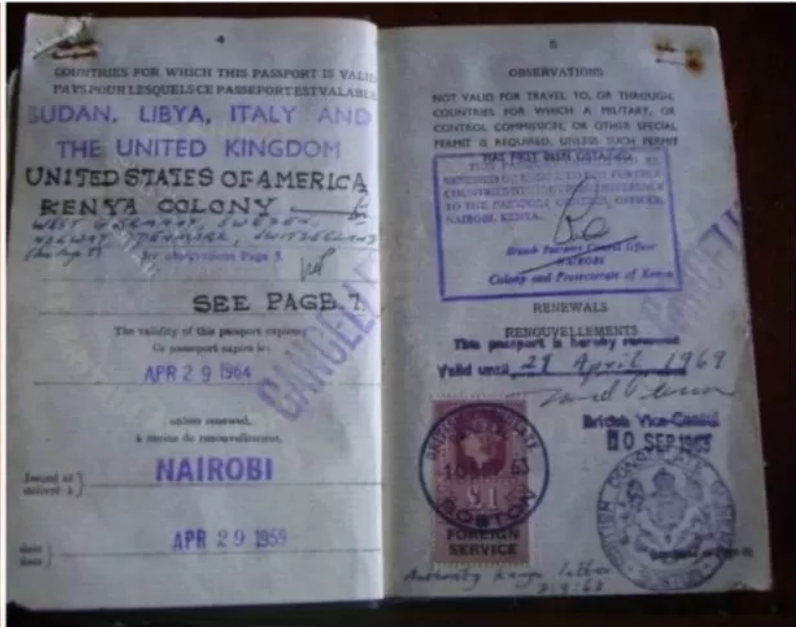 4
COUNTRIES FOR WHICH THIS PASSPORT IS VALID
PAYS POUR LESQUELS CE PASSEPORT EST VALABLE
SUDAN, LIBYA, ITALY AND
THE UNITED KINGDOM
UNITED STATES OF AMERICA
KENYA COLONY
WEST GERMANY, SWEDEN,
NORWAY, DENMARK, SWITZERLAND
for observations Page 5.
SEE PAGE.7.
The validity of this passport expires:
Ce passeport expire le:
APR 29 1964
unless renewed.
à moins de renouvellement.
Issued at
délivré à
NAIROBI
date
date
APR 29 1959
CANCELLED
5
OBSERVATIONS
NOT VALID FOR TRAVEL TO, OR THROUGH,
COUNTRIES FOR WHICH A MILITARY, OR
CONTROL COMMISSION, OR OTHER SPECIAL
PERMIT IS REQUIRED, UNLESS SUCH PERMIT
HAS FIRST BEEN OBTAINED
COUNTRIES REFERENCE
TO THE PASSPORT CONTROL OFFICER,
NAIROBI, KENYA.
British Passport Control Officer
NAIROBI
Colony and Protectorate of Kenya
CANCELLED
RENEWALS
RENOUVELLEMENTS
This passport is hereby renewed
Valid until 28 April, 1969
British Vice-Consul
10 SEP 1963
BRITISH CONSULATE
63
£1
BOSTON
FOREIGN
SERVICE
BRITISH CONSULATE GENERAL
BOSTON
Authority Kenya letter